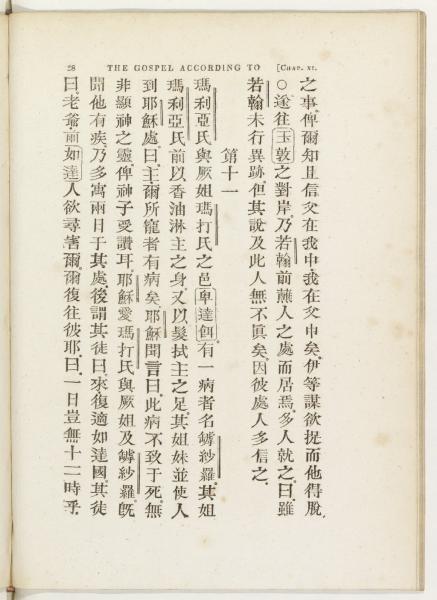 28 THE GOSPEL ACCORDING TO [CHAP. XI.
之事俾爾知且信父在我中我在父中矣伊等謀欲捉而他得脫
○遂往玉敦之對岸乃若翰前蘸人之處而居焉多人就之曰雖
若翰未行異跡但其說及此人無不眞矣因彼處人多信之
第十一
瑪利亞氏與厥姐瑪打氏之邑卑達你有一病者名嚹紗羅其姐
瑪利亞氏前以香油淋主之身又以髮拭主之足其姐妹並使人
到耶穌處曰主爾所寵者有病矣耶穌聞言曰此病不致于死無
非顯神之靈俾神子受讚耳耶穌愛瑪打氏與厥姐及嚹紗羅旣
聞他有疾乃多寓兩日于其處後謂其徒曰來復適如達國其徒
曰老爺而如達人欲尋害爾爾復往彼耶曰一日豈無十二時乎